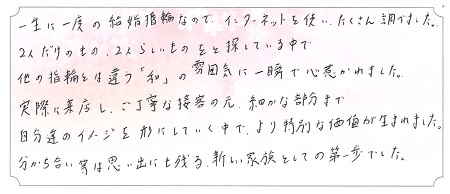 一生に一度の結婚指輪なので、インターネットを使い、たくさん調べました。
2人だけのもの、2人らしいものをと探している中で
他の指輪とは違う「和」の雰囲気に一瞬で心惹かれました。
実際に来店し、ご丁寧な接客の元、細かな部分まで
自分達のイメージを形にしていく中で、より特別な価値が生まれました。
分かち合い等は思い出にも残る、新しい家族としての第一歩でした。